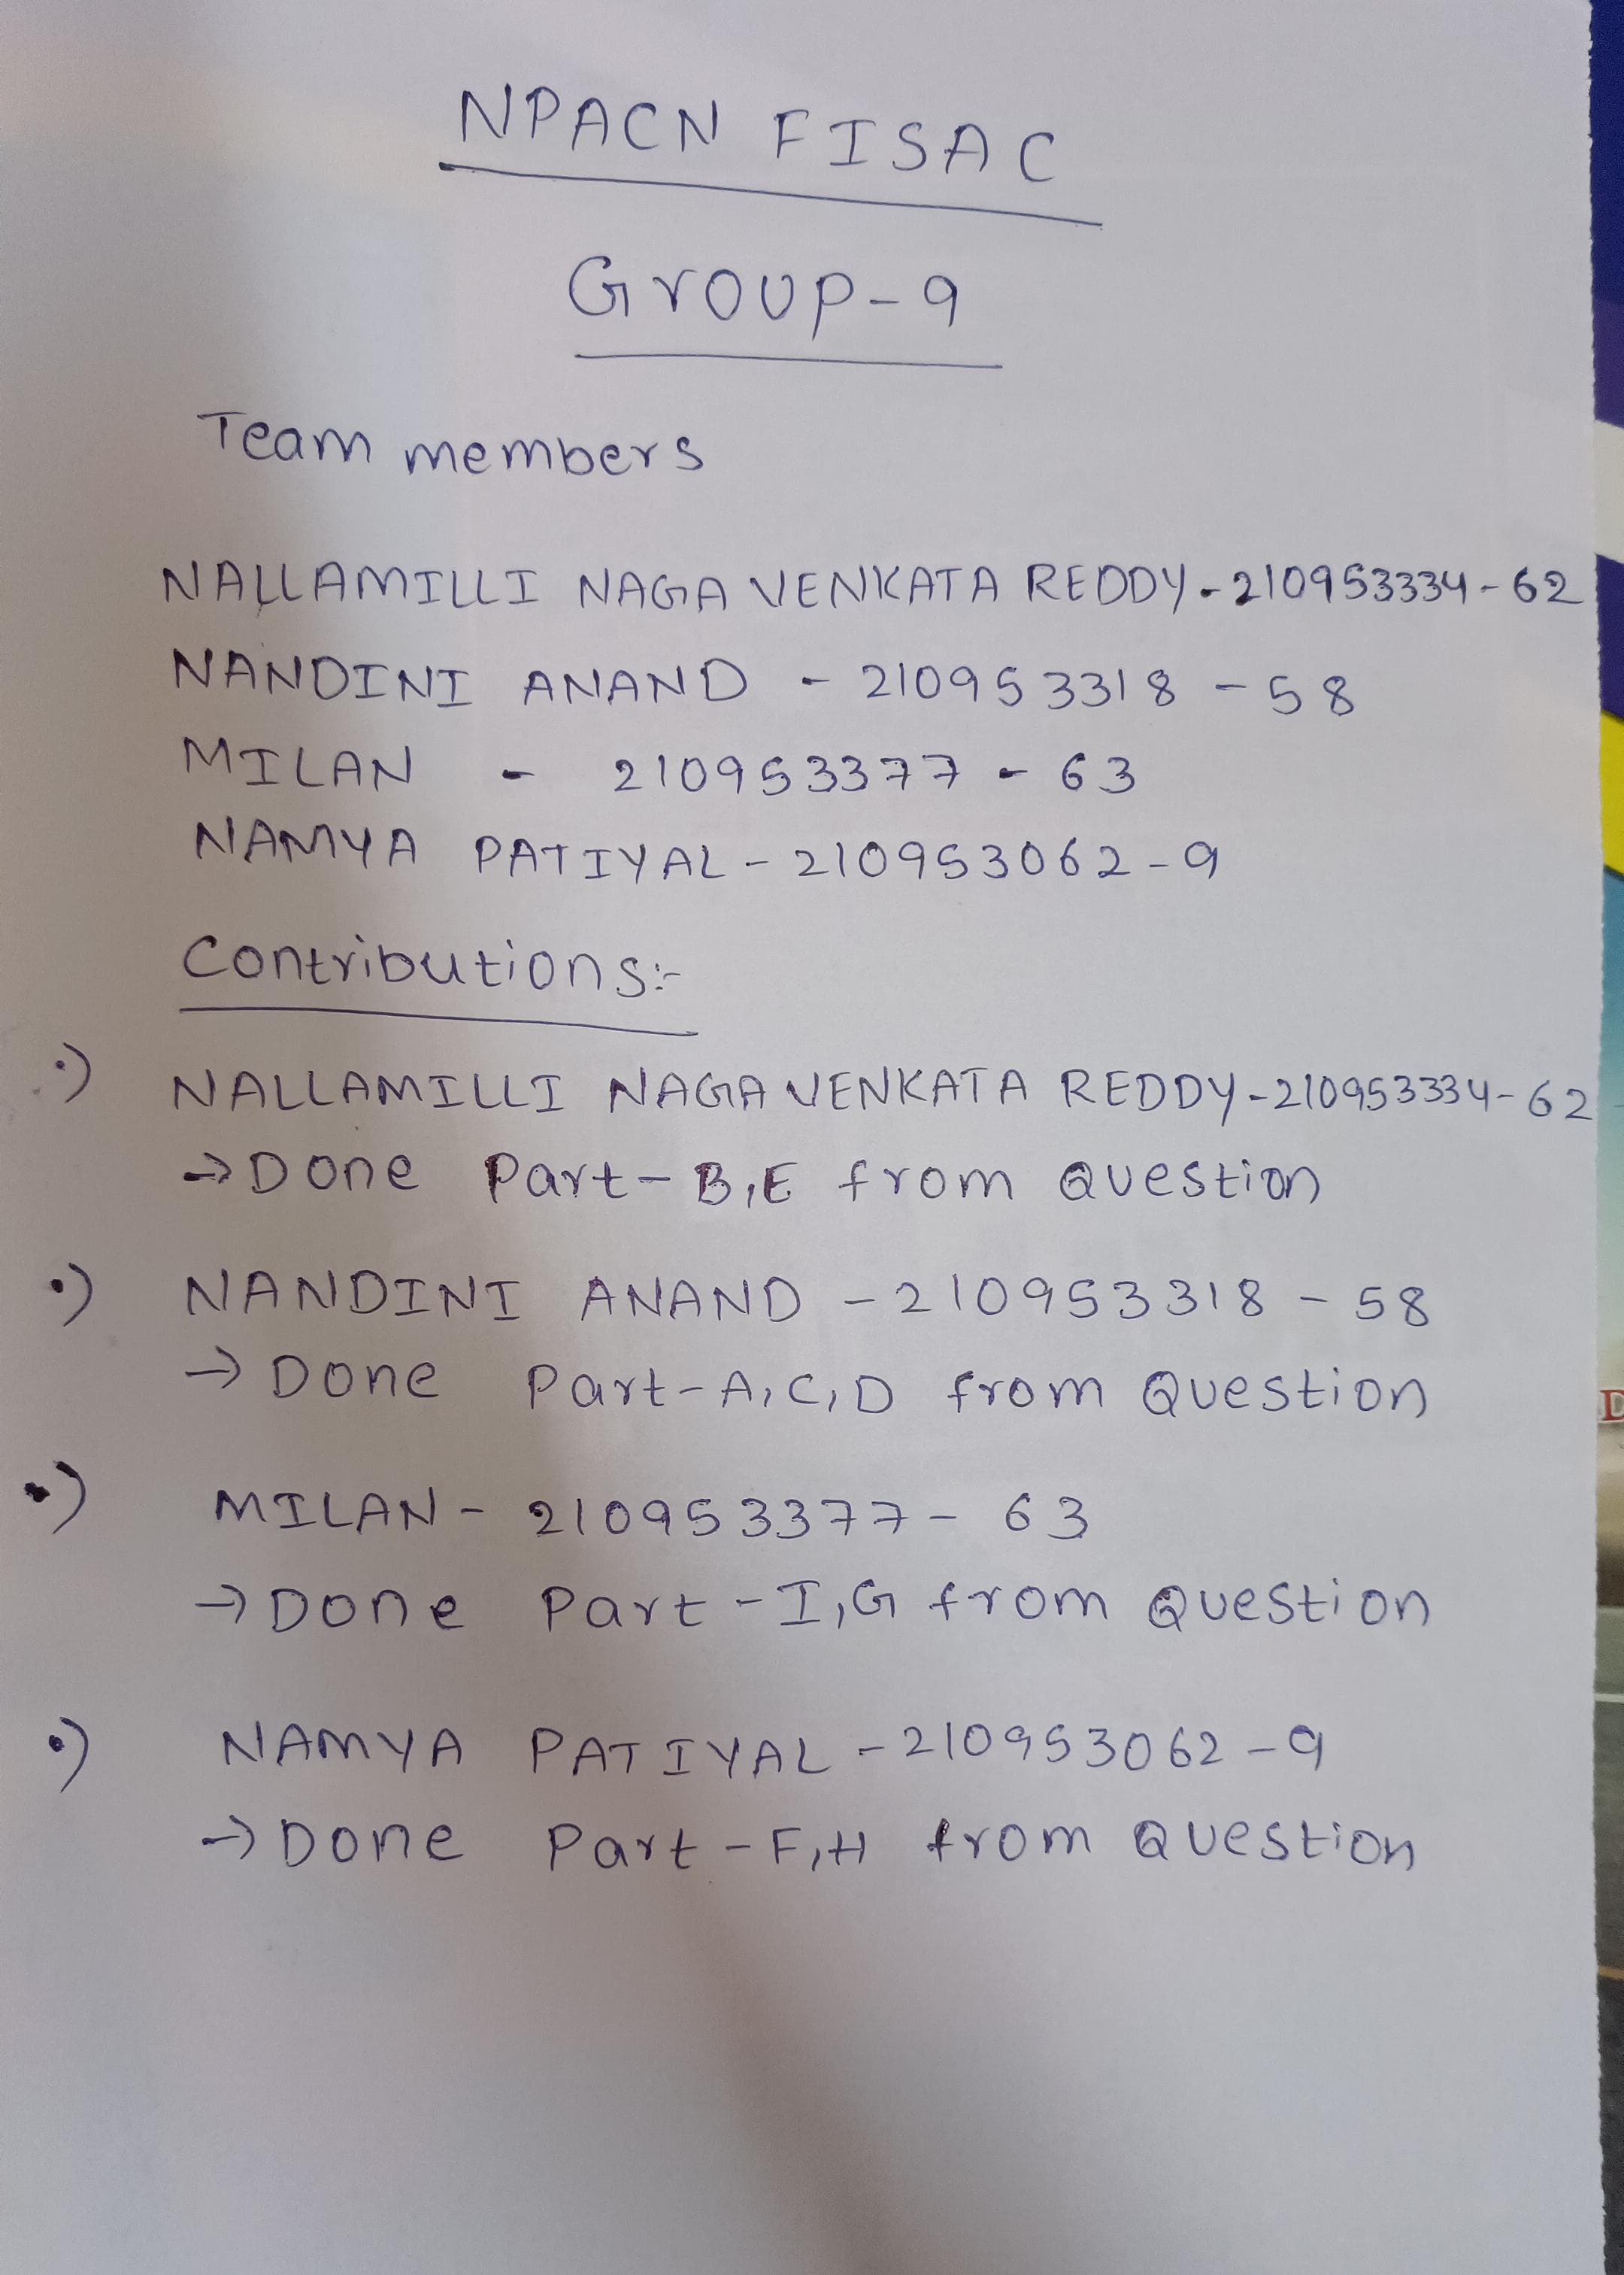 NPACN FISAC
Group-9
Team members
NALLAMILLI NAGA VENKATA REDDY-210953334-62
NANDINI ANAND - 210953318 - 58
MILAN - 210953377 - 63
NAMYA PATIYAL - 210953062-9
Contributions:-
•) NALLAMILLI NAGA VENKATA REDDY-210953334-62
→Done Part-B,E from Question
•) NANDINI ANAND - 210953318 - 58
→ Done Part-A,C,D from Question
•) MILAN - 210953377 - 63
→Done Part-I,G from Question
•) NAMYA PATIYAL - 210953062-9
→Done Part-F,H from Question
D